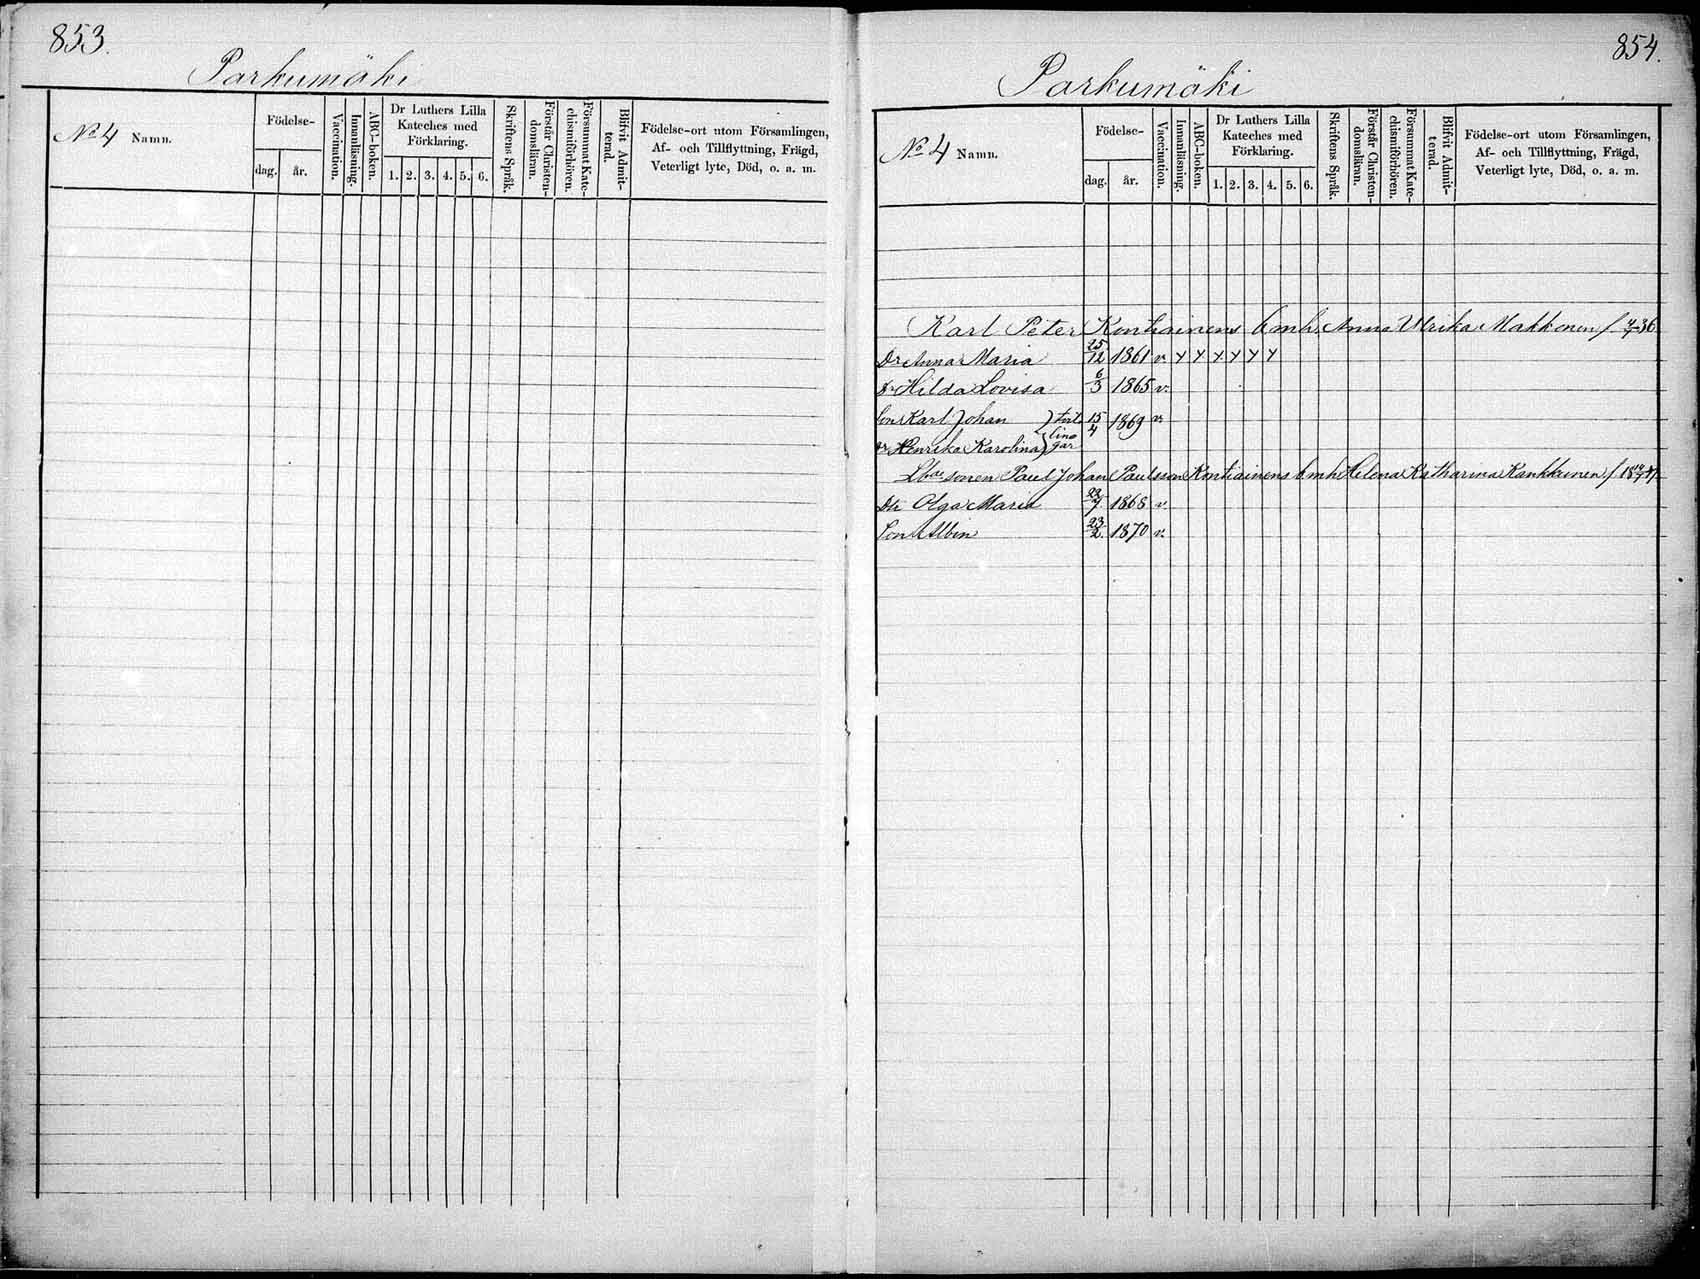 853.
Parkumäki
No 4 Namn.
Födelse-
dag.
år.
Vaccination.
Innanläsning.
ABC-boken.
Dr Luthers Lilla
Kateches med
Förklaring.
1. 2. 3. 4. 5. 6.
Skriftens Språk.
Förstår Christen-
domsläran.
Försummat Kate-
chismiförhören.
Blifvit Admit-
terad.
Födelse-ort utom Församlingen,
Af- och Tillflyttning, Frägd,
Veterligt lyte, Död, o. a. m.
854.
Parkumäki
No 4 Namn.
Födelse-
dag.
år.
Vaccination.
Innanläsning.
ABC-boken.
Dr Luthers Lilla
Kateches med
Förklaring.
1. 2. 3. 4. 5. 6.
Skriftens Språk.
Förstår Christen-
domsläran.
Försummat Kate-
chismiförhören.
Blifvit Admit-
terad.
Födelse-ort utom Församlingen,
Af- och Tillflyttning, Frägd,
Veterligt lyte, Död, o. a. m.
Karl Peter Kontiainens Anna Ulrika Makkonen f. 36
Dr Anna Maria 25/12 1861 v. x x x x x x
Dr Hilda Lovisa 6/3 1865 v.
Son Karl Johan 15/4 1869 v.
Dr Henrika Karolina
sonen Paul Johan Paulsson Kontiainens Helena Katharina Kankkunen f.
Dtr Olga Maria 22/7 1868 v.
Son Albin 23/2 1870 v.